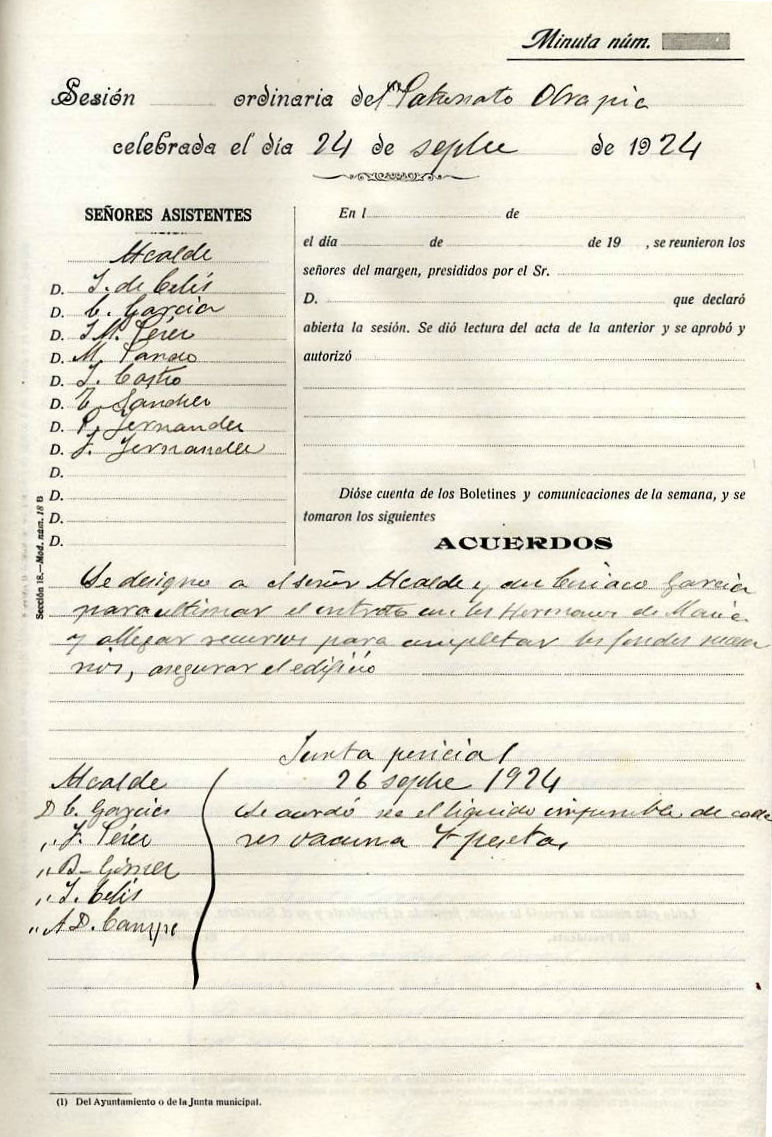 Minuta núm.
Sesión ordinaria del (1) Patronato Obra pia
celebrada el día 24 de sepbre de 1924
SEÑORES ASISTENTES
Alcalde
D. I. de Celis
D. C. Garcia
D. J M. Pérez
D. M. Pando
D. I. Castro
D. T. Sanchez
D. P. Fernandez
D. F. Fernandez
D.
D.
D.
D.
En l de
el día de de 19 , se reunieron los
señores del margen, presididos por el Sr.
D. que declaró
abierta la sesión. Se dió lectura del acta de la anterior y se aprobó y
autorizó
Dióse cuenta de los Boletines y comunicaciones de la semana, y se
tomaron los siguientes
ACUERDOS
Se designo a el señor Alcalde y don Ciriaco Garcia
para ultimar el contrato con los Hermanos de Maria
y allegar recursos para completar los fondos necesa
rios, asegurar el edificio
Junta pericial
26 sepbre 1924
Alcalde
D C. Garcia
" J. Pérez
" B. Gómez
" I. Celis
" A D. Campo
Se acordó sea el liquido imponible de cada
res vacuna 7 pesetas
Sección 18.—Mod. núm. 18 B
(1) Del Ayuntamiento o de la Junta municipal.